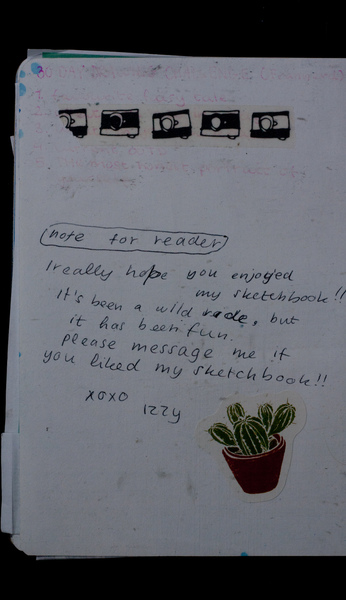 note for reader
I really hope you enjoyed
my sketchbook!!
It's been a wild rade, but
it has been fun.
please message me if
you liked my sketchbook!!
xoxo
izzy